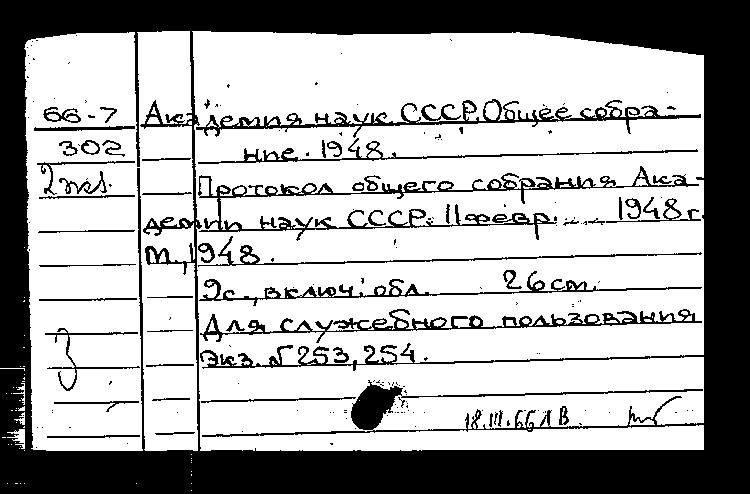 66-7 Академия наук СССР. Общее собра-
302 ние. 1948.
2 экз. Протокол общего собрания Ака-
демии наук СССР. 11 февр. 1948 г.
М., 1948.
9с., включ. обл. 26 cm.
Для служебного пользования
Экз. № 253, 254.
З
18.III.66 ЛВ.